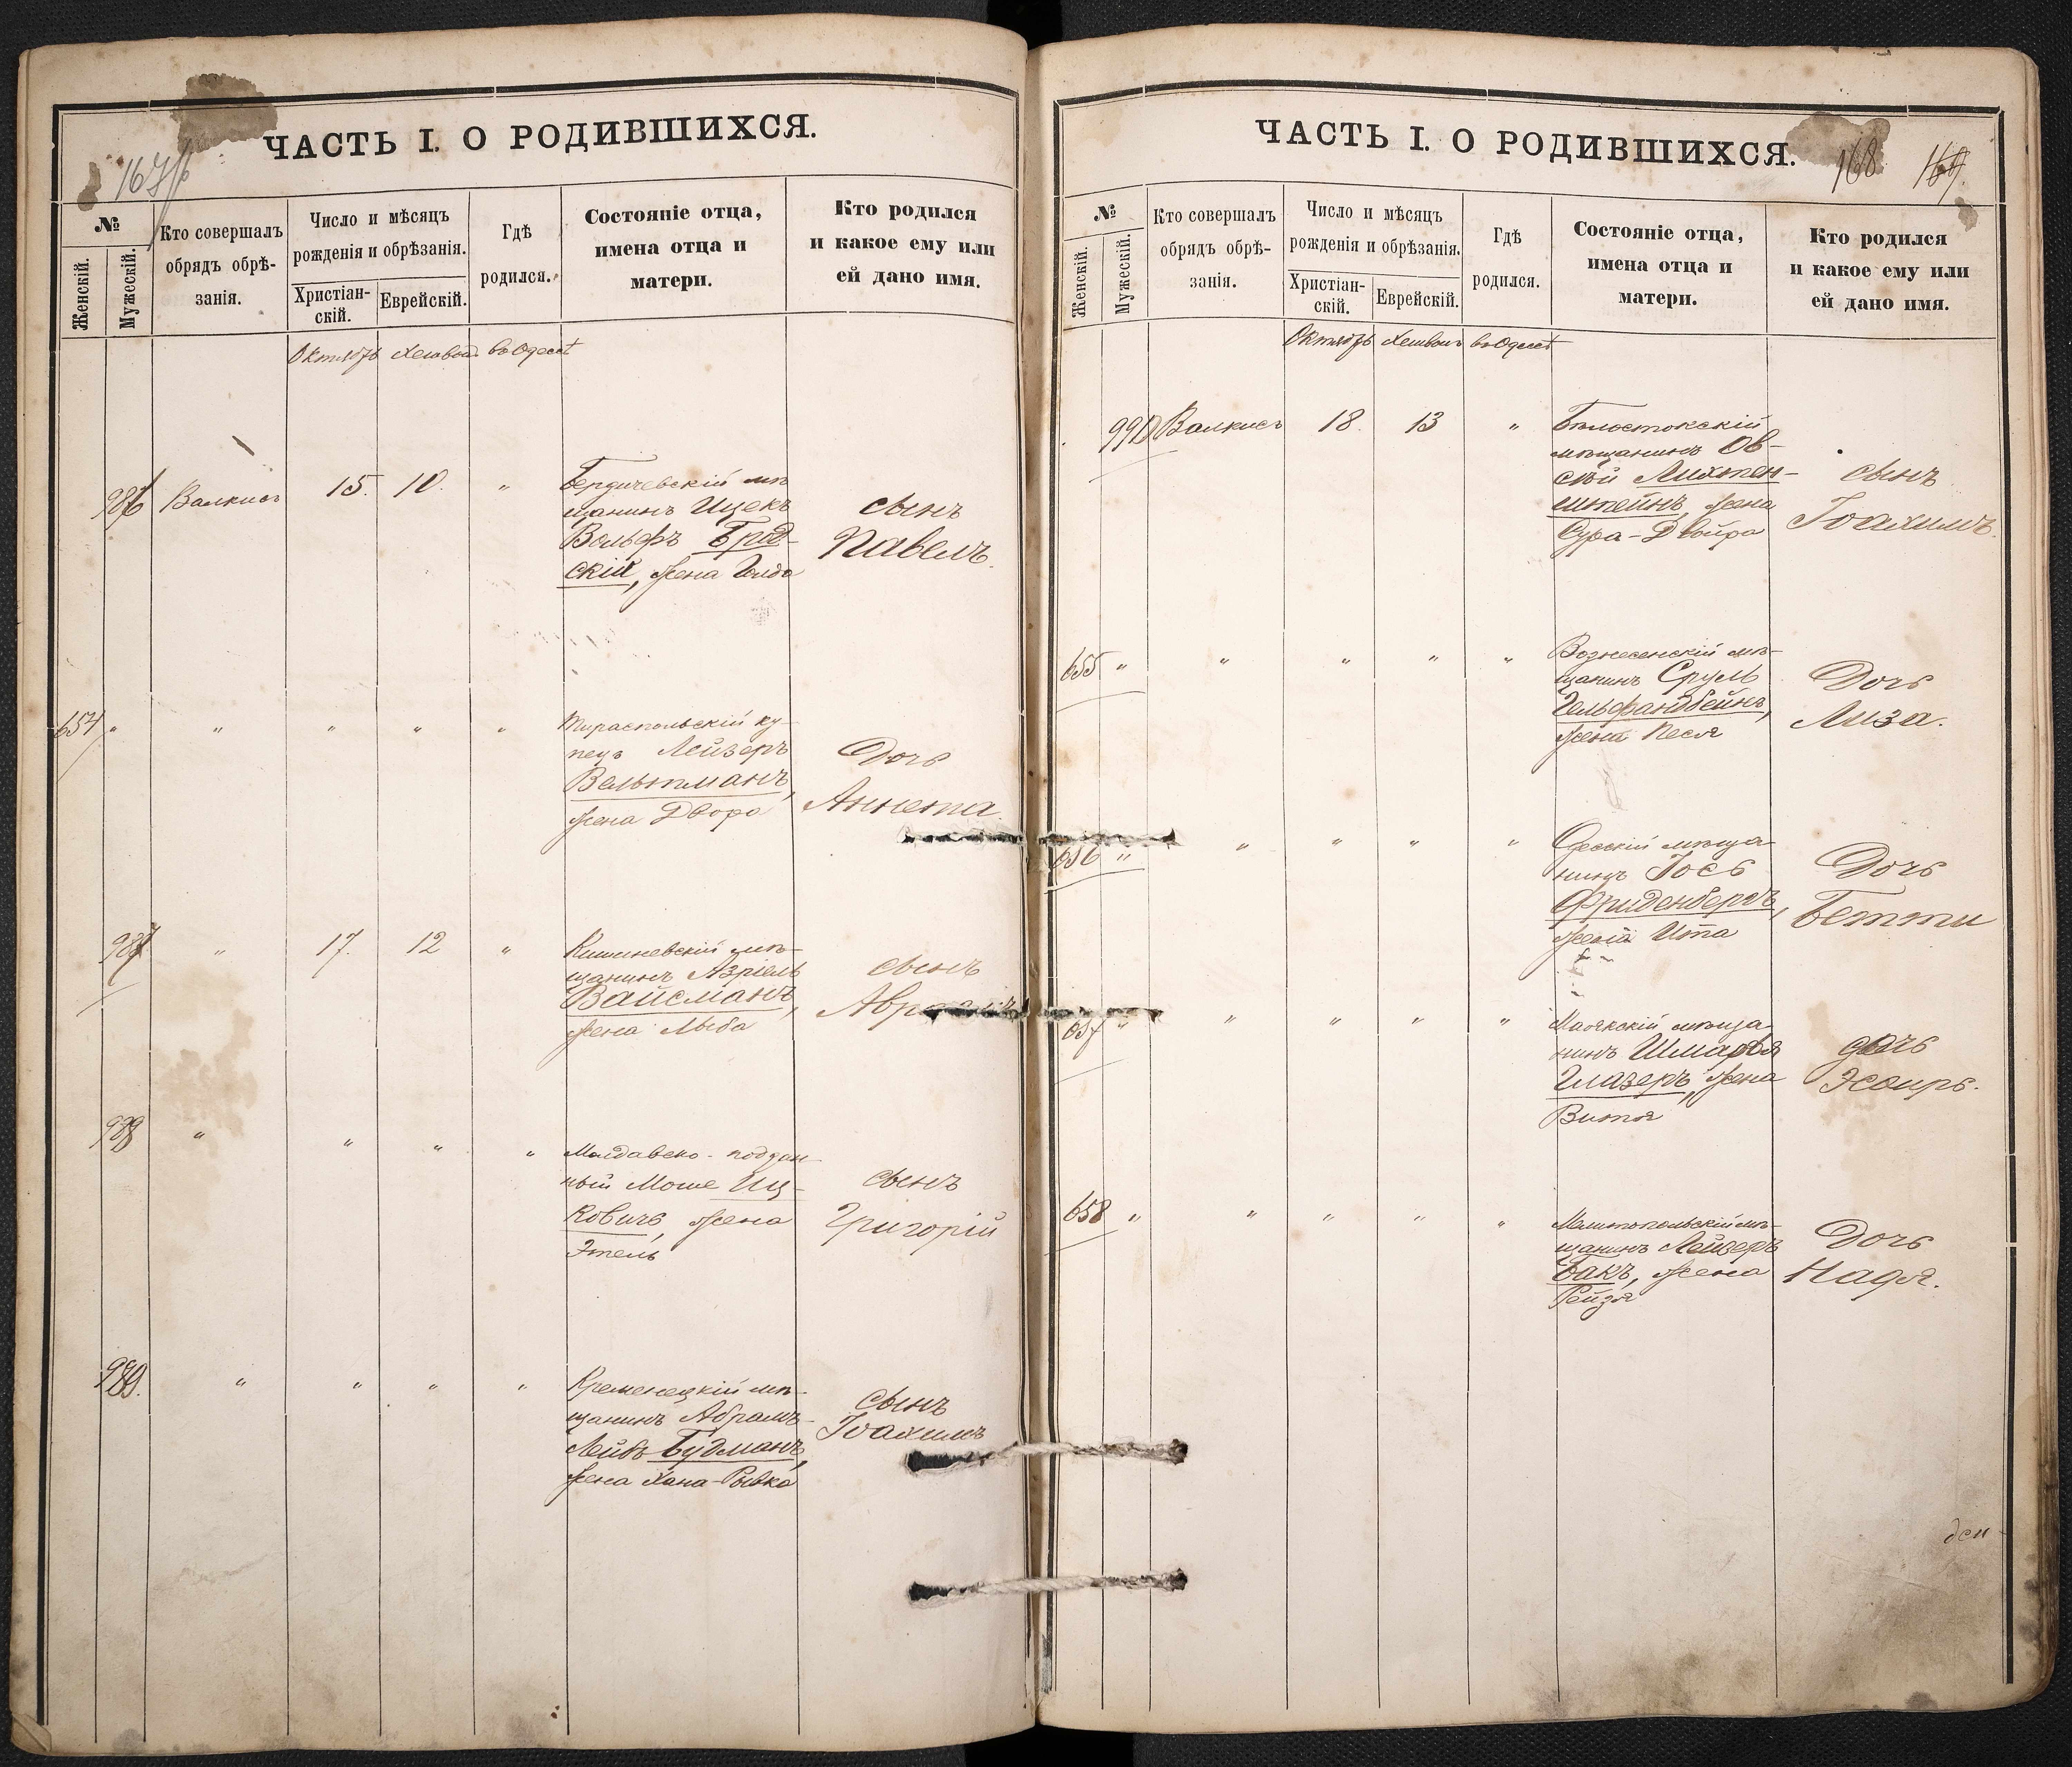 ЧАСТЬ I. О РОДИВШИХСЯ.
№
Женскій.
Мужескій.
Кто совершалъ
обрядъ обрѣ-
занія.
Число и мѣсяцъ
рожденія и обрѣзанія.
Христіан-
скій.
Еврейскій.
Гдѣ
родился.
Состояніе отца,
имена отца и
матери.
Кто родился
и какое ему или
ей дано имя.
Октябрь Хешванъ въ Одессѣ
986 Валкисъ 15. 10. "
Бердичевскій мѣ-
щанинъ Ицекъ
Вольфъ Брод-
скій, жена Голда
сынъ
Павелъ.
654 " " " " "
Тираспольскій ку-
пецъ Лейзеръ
Вельтманъ,
жена Двора
Дочь
Аннета.
987 " 17. 12 "
Кишиневскій мѣ-
щанинъ Азріель
Вайсманъ,
жена Лыба
сынъ
988 " " " "
Молдавско-поддан-
ный Моше Иц-
ковичъ, жена
Этель
сынъ
Григорій
989. " " " "
Кременецкій мѣ-
щанинъ Абрамъ-
Лейбъ Будманъ,
жена Хана-Рывка
сынъ
Іоахимъ
ЧАСТЬ I. О РОДИВШИХСЯ.
168
№
Женскій.
Мужескій.
Кто совершалъ
обрядъ обрѣ-
занія.
Число и мѣсяцъ
рожденія и обрѣзанія.
Христіан-
скій.
Еврейскій.
Гдѣ
родился.
Состояніе отца,
имена отца и
матери.
Кто родился
и какое ему или
ей дано имя.
Октябрь Хешванъ въ Одессѣ
990 Валкисъ 18. 13 "
Бѣлостокскій
мѣщанинъ Ов-
сѣй Лихтен-
штейнъ, жена
Сура-Двойра
сынъ
Іоахимъ.
655 " " " " "
Вознесенскій мѣ-
щанинъ Сруль
Гельфандбейнъ,
жена Песя
Дочь
Лиза.
656 " " " " "
Одесскій мѣща-
нинъ Іось
Фриденбергъ,
жена Ита
Дочь
Бетти
657 " " " " "
Маякскій мѣща-
нинъ Шмарья
Глазеръ, жена
Витя
дочь
Эсѳирь.
658 " " " " "
Мелитопольскій мѣ-
щанинъ Лейзеръ
Бакъ, жена
Рейзя
Дочь
Надя.